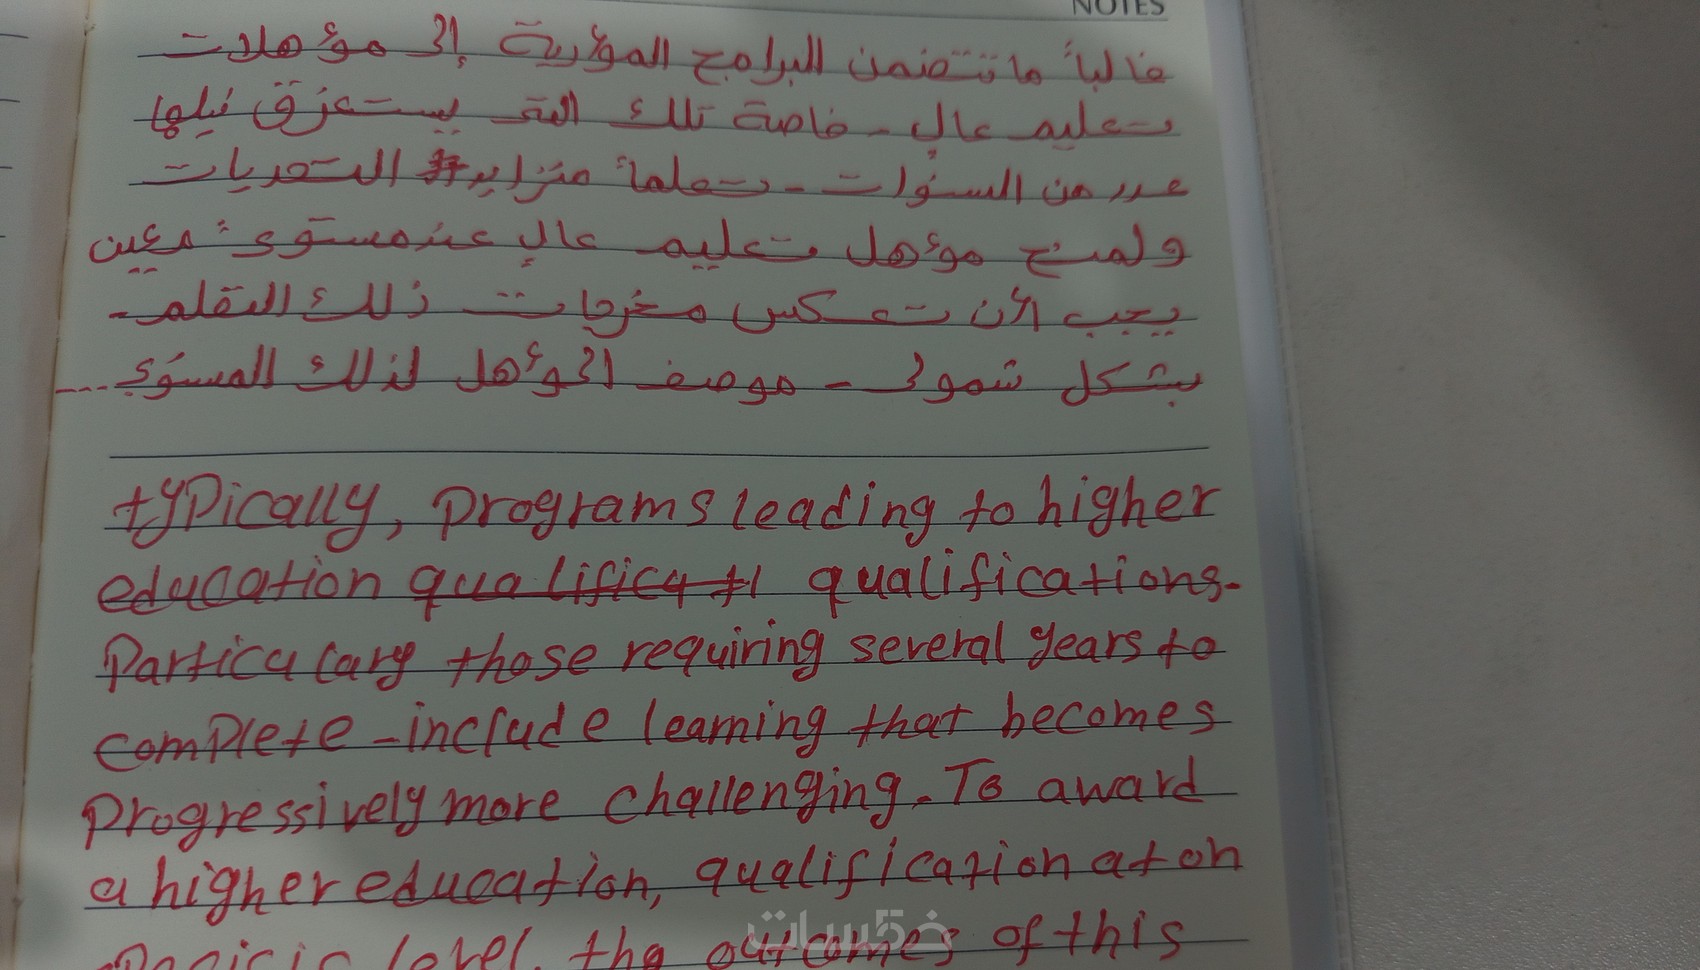 NOTES
غالباً ما تتضمن البرامج المؤدية إلى مؤهلات
تعليم عالٍ - خاصة تلك التي يستغرق نيلها
عدد من السنوات - تعلماً متزايد التحديات
ولمنح مؤهل تعليم عالٍ عند مستوىً معين
يجب الأن تعكس مخرجات ذلك التقلم -
بشكل شمولى - موصف المؤهل لذلك المستوى ...
typically, programs leading to higher
education qualificati qualifications-
Particulary those requiring several years to
complete -include learning that becomes
progressively more challenging. To award
a higher education, qualification at on
level, the outcomes of this
خمسات